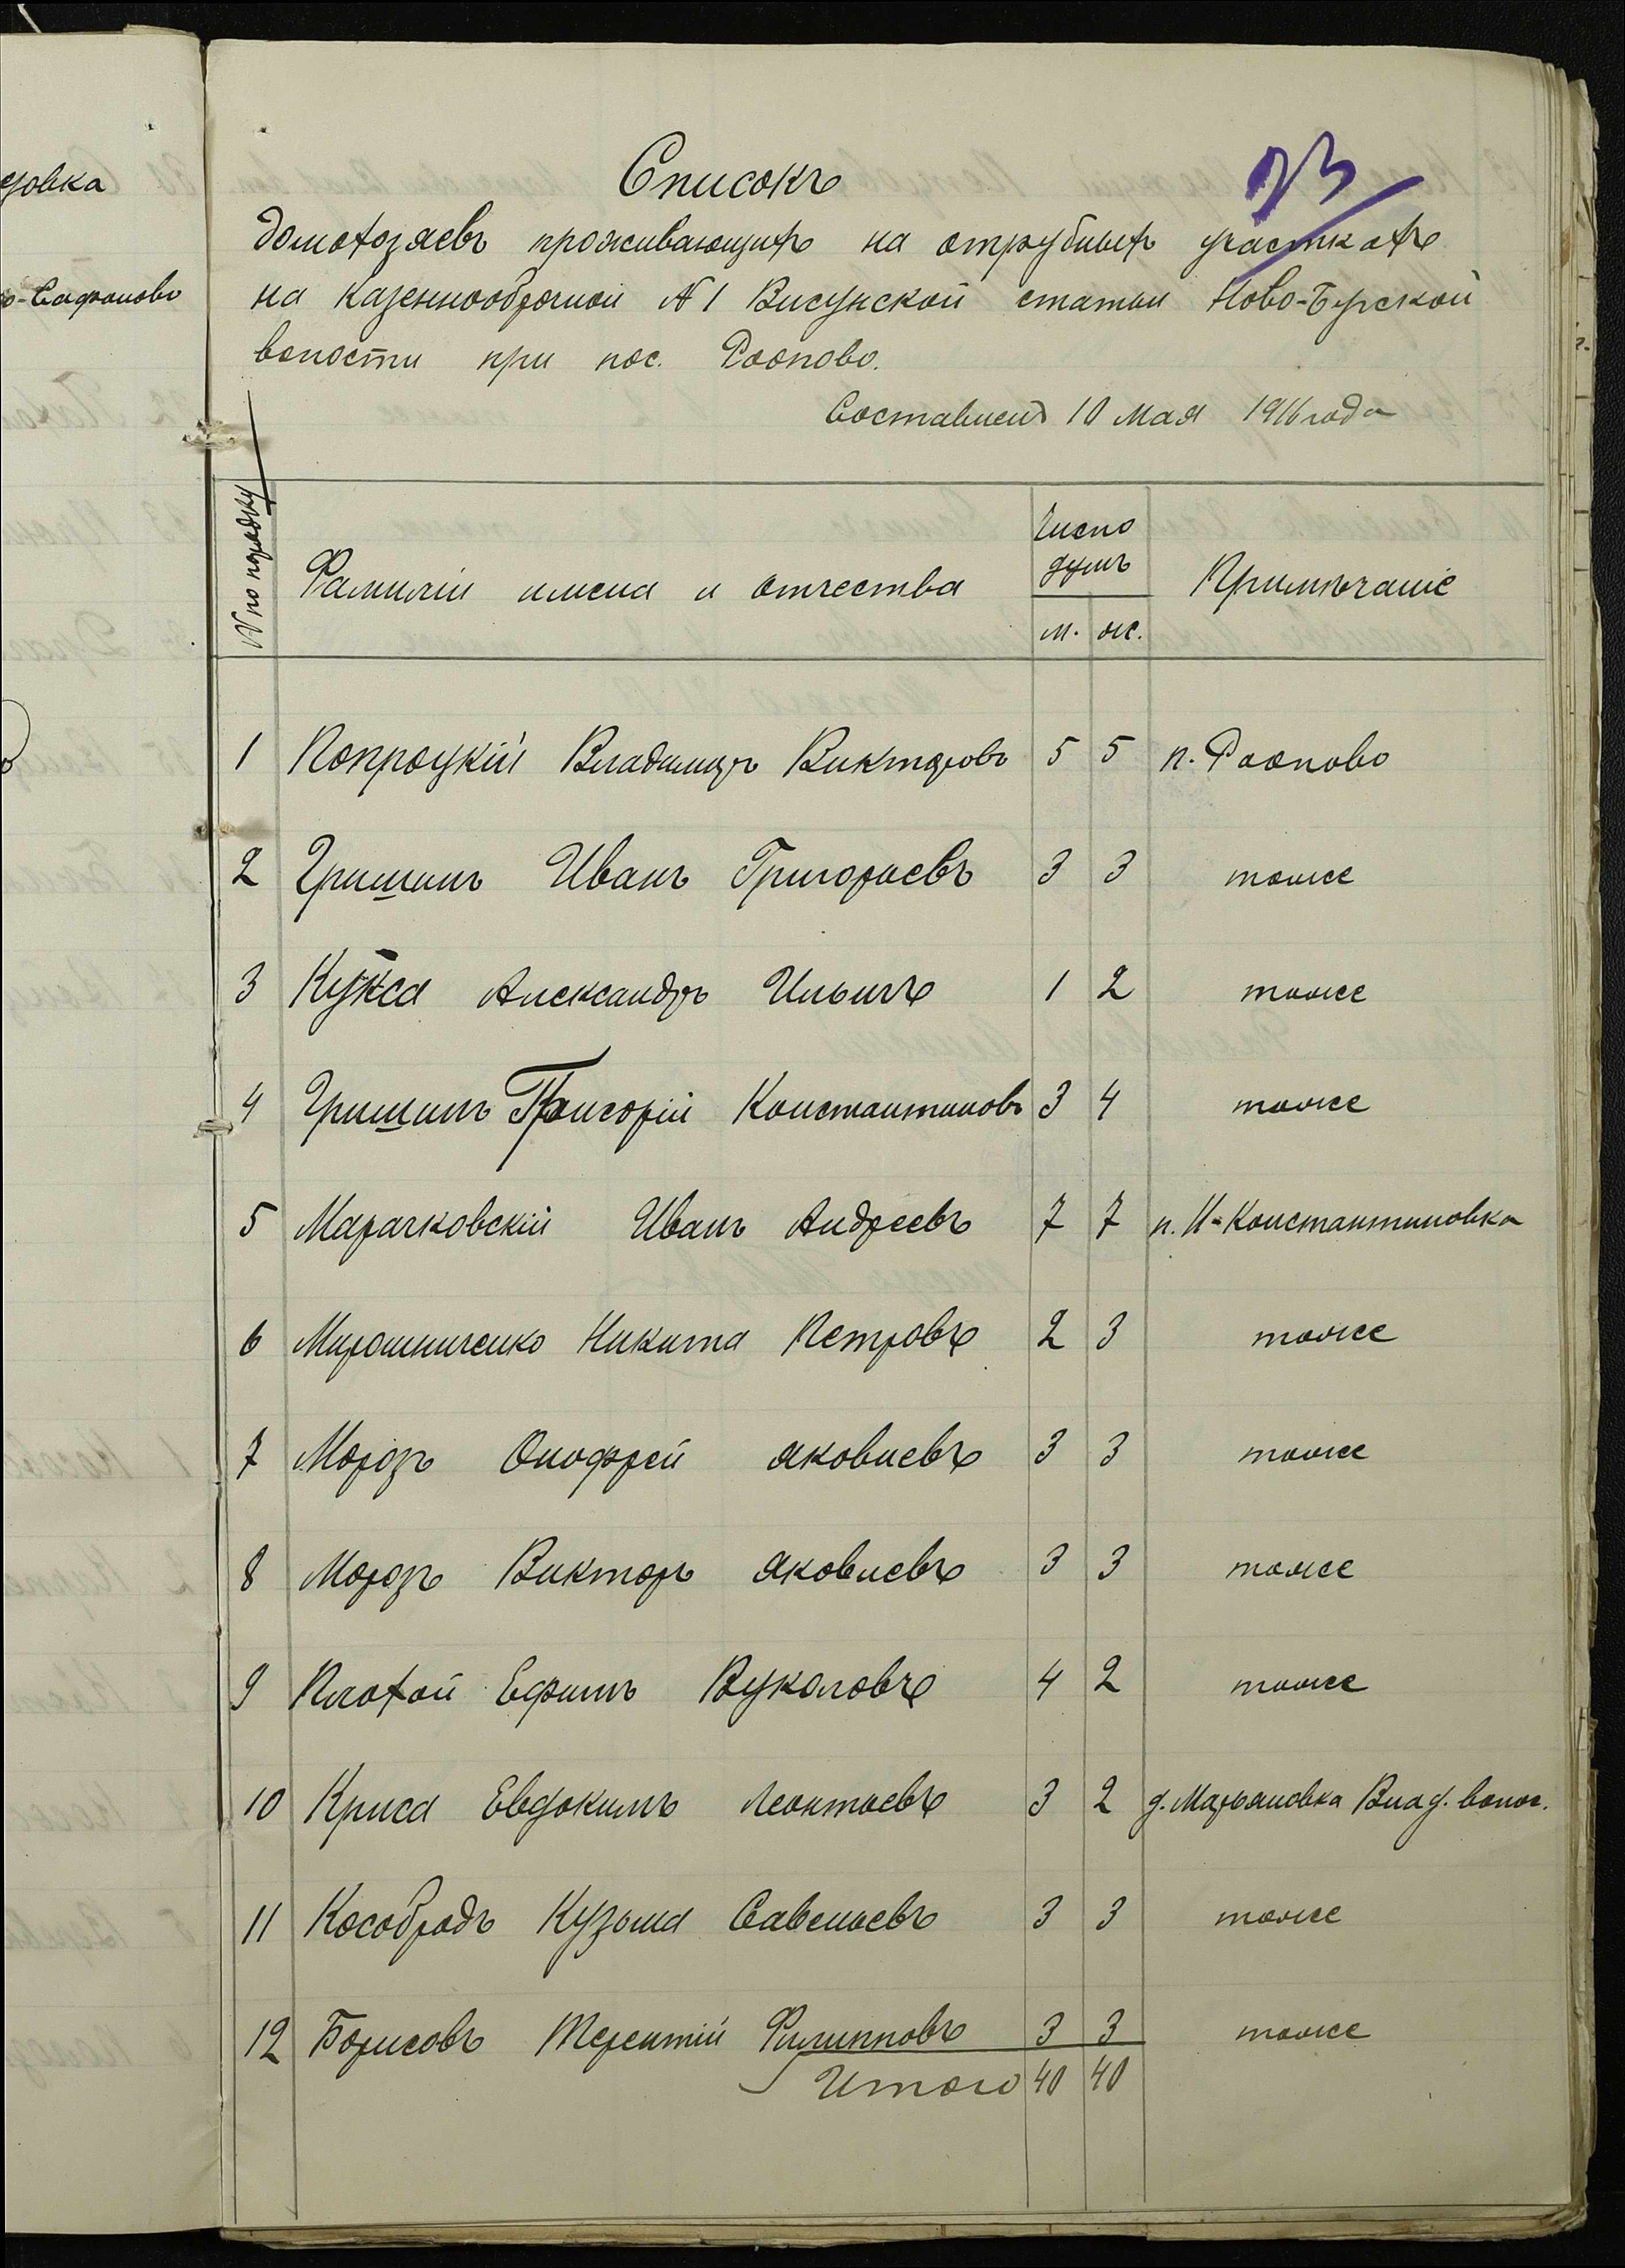 уовка
о-Сафонов
23
Списокъ
домохозяевъ проживающихъ на отрубныхъ участкахъ
на казеннооброчной № 1 Висунской статьи Ново-Бургской
волости при пос.
Составленъ 10 Мая 1916 года
№ по порядку
Фамиліи имена и отчества
Число
душъ
Примѣчаніе
м. ж.
1 Попроцкій Владимиръ Викторовъ 5 5 п.
2 Гришинъ Иванъ Григорьевъ 3 3 тоже
3 Кукса Александръ Ильичъ 1 2 тоже
4 Гришинъ Григорій Константиновъ 3 4 тоже
5 Марачковскій Иванъ Андреевъ 7 7 п. Н-Константиновка
6 Мирошниченко Никита Петровъ 2 3 тоже
7 Морозъ Онофрей Яковлевъ 3 3 тоже
8 Морозъ Викторъ Яковлевъ 3 3 тоже
9 Плохой Ефимъ Вуколовъ 4 2 тоже
10 Криса Евдокимъ Леонтьевъ 3 2 д. Марьяновка Влад. волос.
11 Кособродъ Кузьма Савельевъ 3 3 тоже
12 Борисовъ Терентій Филипповъ 3 3 тоже
Итого 40 40